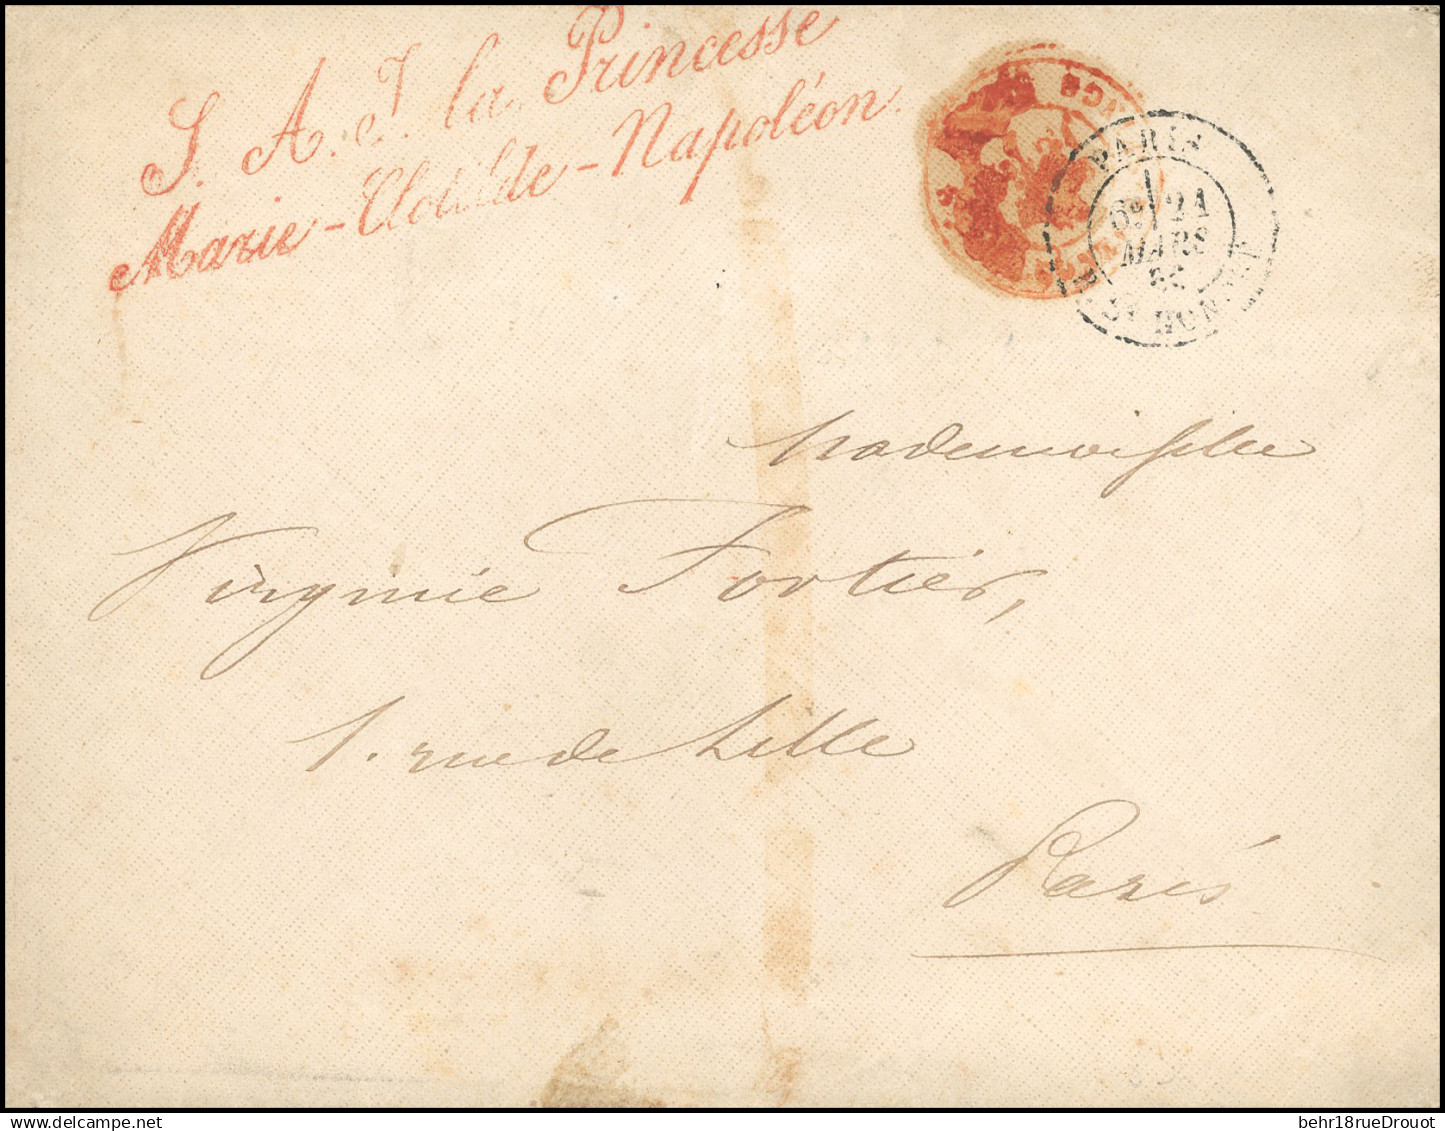 S. A. I. la Princesse
Marie-Clotilde-Napoléon.
PARIS
6E 21
MARS
R. ST HONORÉ
Mademoiselle
Virginie Fortier,
1. rue de Lille
Paris
behr18rueDrouot